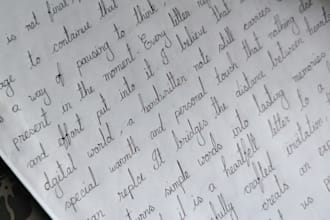 is not final,
to continue that
a way of pausing to think,
present in the moment. Every letter
and effort put into it. I believe that carries
digital world, a handwritten note still
special warmth and personal touch that nothing
can replace. It bridges the distance between
turns simple words into lasting memories
is a heartfelt letter to a
crafted invitation,
creats an